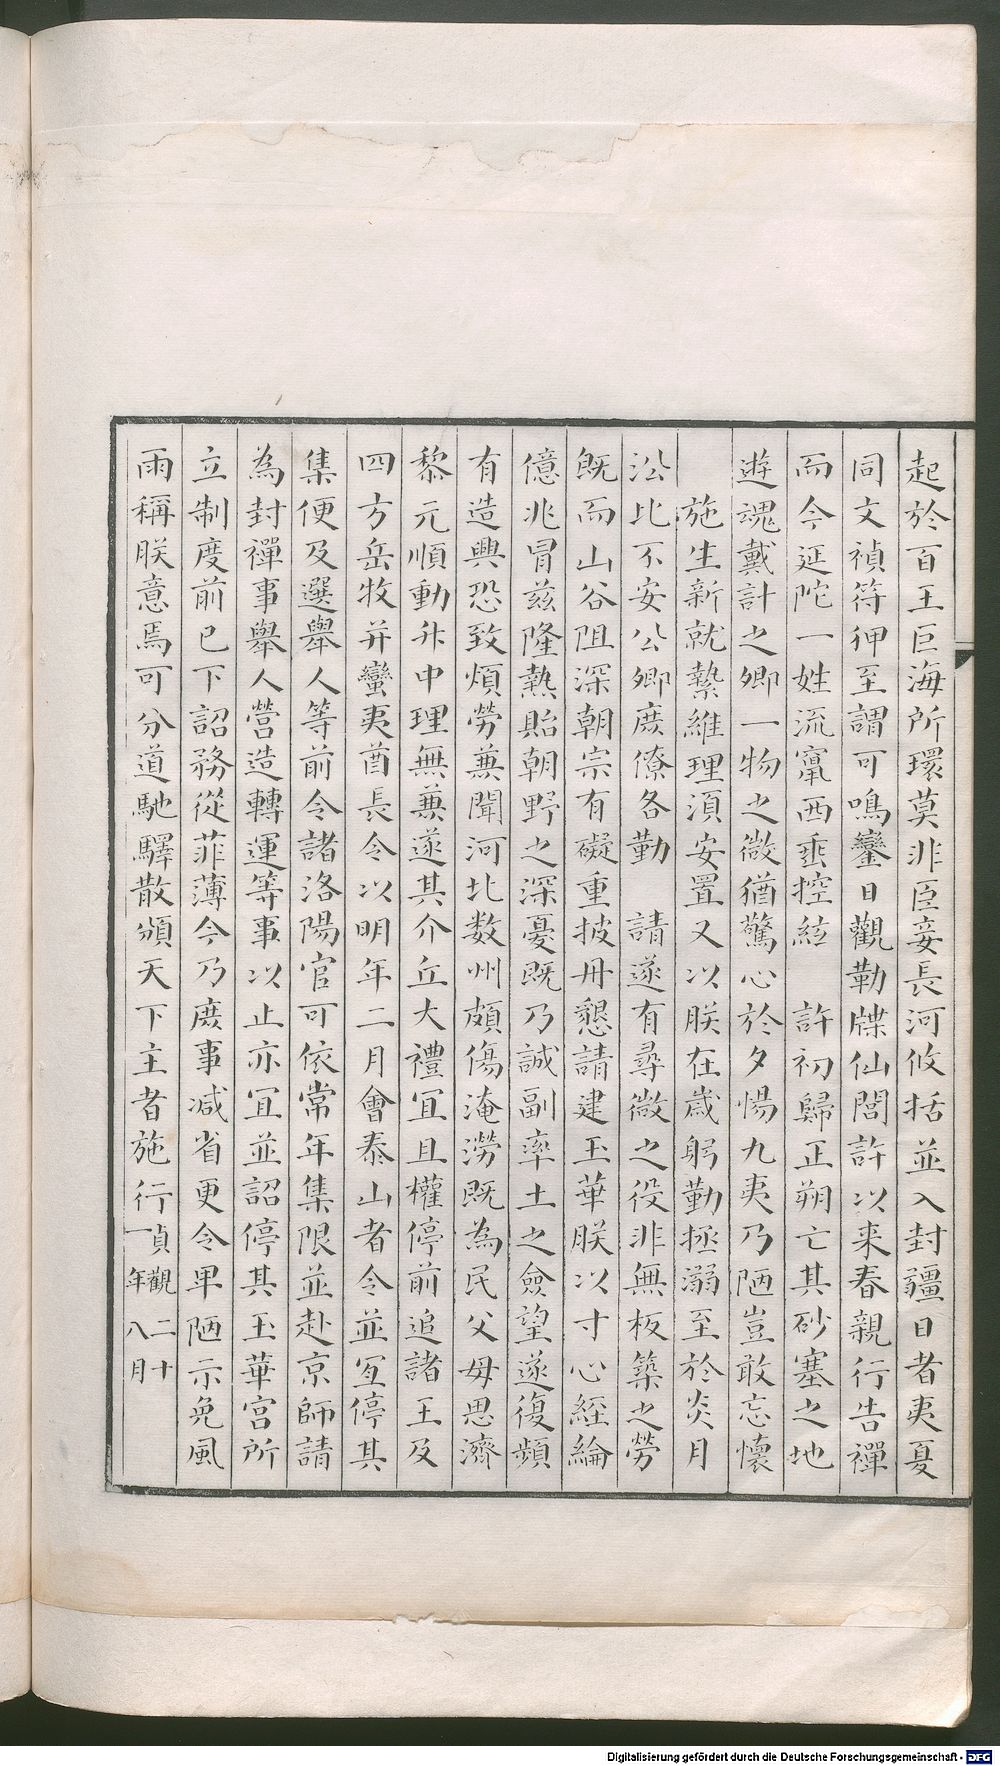 起於百王巨海所環莫非臣妾長河攸括並入封疆日者夷夏
同文禎符狎至謂可鳴鑾日觀勒牒仙閭許以来春親行告禪
而今延陀一姓流竄西垂控絃 許初歸正朔亡其砂塞之地
遊魂戴計之卿一物之微猶驚心於夕惕九夷乃陋豈敢忘懷
施生新就縶維理須安置又以朕在歲躬勤拯溺至於炎月
㳂比不安公卿庶僚各勤 請遂有尋微之役非無板築之勞
既而山谷阻深朝宗有礙重披丹懇請建玉華朕以寸心經綸
億兆冒茲隆熱貽朝野之深憂既乃誠副率土之僉望遂復頻
有造興恐致煩勞兼聞河北数州頗傷淹澇既為民父母思濟
黎元順動升中理無兼遂其介丘大禮宜且權停前追諸王及
四方岳牧并蠻夷酋長令以明年二月會泰山者令並宜停其
集便及選舉人等前令諸洛陽官可依常年集限並赴京師請
為封禪事舉人營造轉運等事以止亦宜並詔停其玉華宮所
立制度前已下詔務從菲薄今乃庶事减省更令卑陋示免風
雨稱朕意焉可分道馳驛散頒天下主者施行貞觀二十一年八月
Digitalisierung gefördert durch die Deutsche Forschungsgemeinschaft - DFG